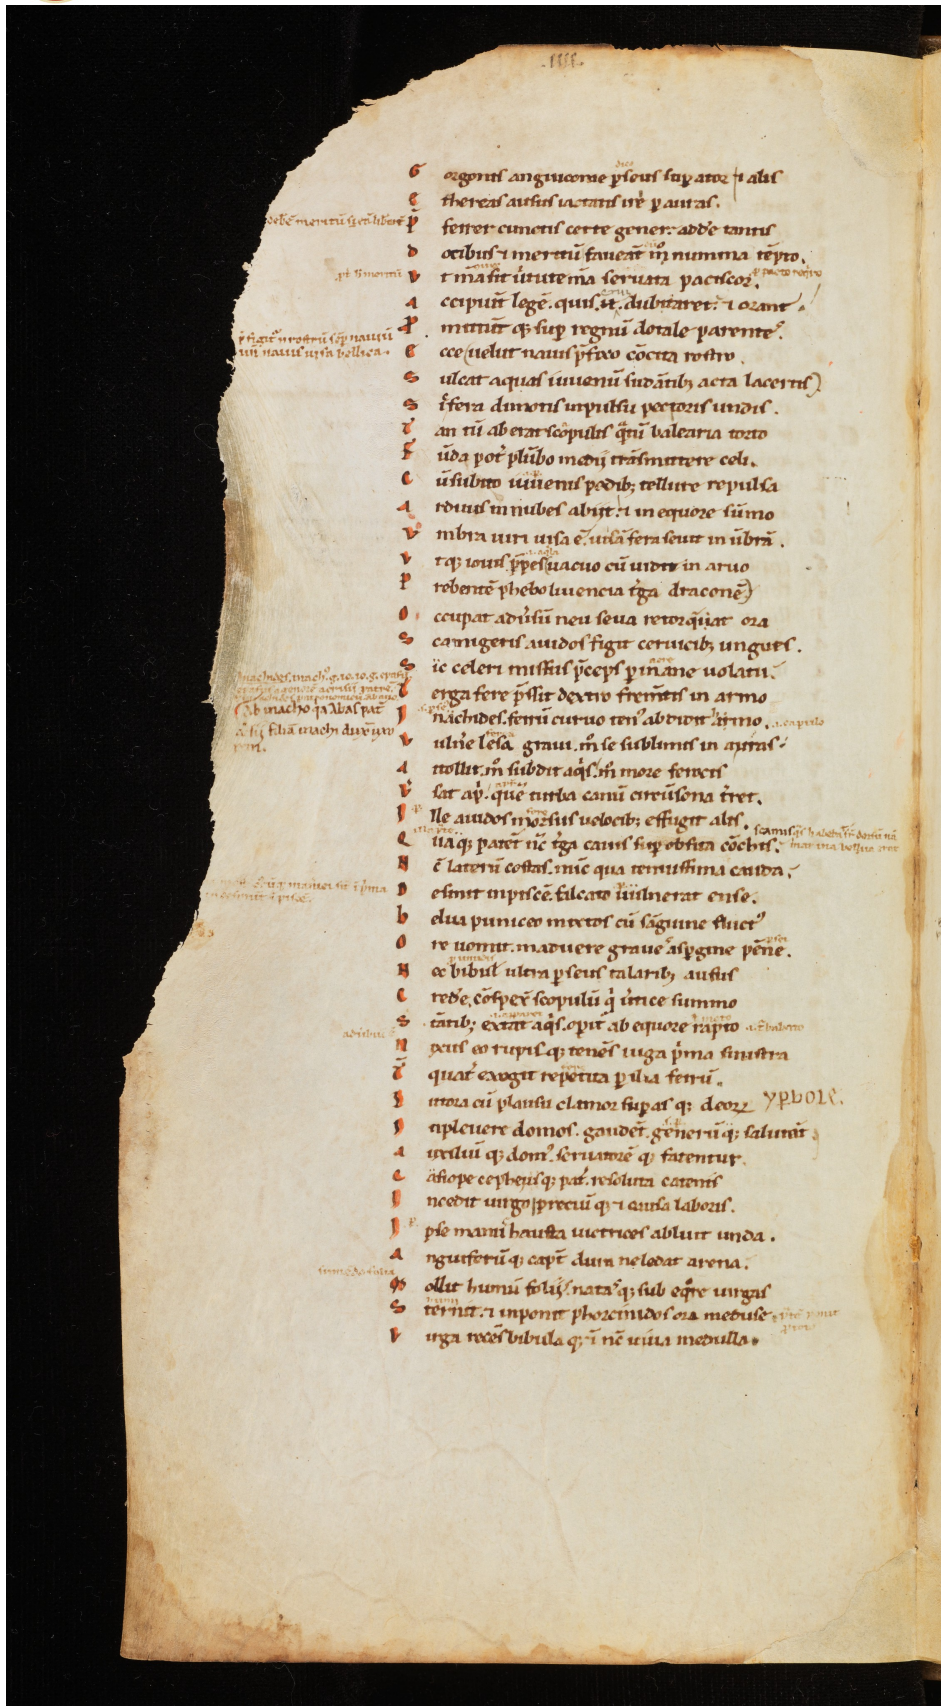 .IIII.
G orgonis anguicome p̄seus supator ⁊ alis
E thereas ausus iactatis ire p auras.
P̄ ferrer cunctis certe gener: adde tantis
D otibus ⁊ meritū faueāt m̊ numina tēpto.
V t m̄a sit uirtute m̄a seruata paciscor.
A ccipiūt legē. quis .n̄. dubitaret: ⁊ orant
P̄ mittūt q; sup regnū dotale parentes.
E cce uelut nauis p̄fixo cōcita rostro.
S ulcat aquas iuuenū sudātib; acta lacertis
S ic fera dimotis inpulsu pectoris undis.
T an tū aberat scopulis q̄tū balearia torto
F ūda potest plūbo medij trāsmittere celi.
C ū subito iuuenis pedib; tellure repulsa
A rduus in nubes abijt: ⁊ in equore sūmo
V mbra uiri uisa ē. uisā fera seuit in ūbrā.
V t q; iouis p̄pes uacuo cū uidit in aruo
P rebentē phebo liuencia t̄ga draconē
O ccupat aduersū neu seua retorqueat ora
S camigeris auidos figit ceruicib; ungues.
S ic celeri missus p̄ceps p inane uolatu.
T erga fere p̄ssit dextro fremētis in armo
I nachides. ferrū curuo tenus abdidit armo.
V ulnere lesa graui. m̊ se sublimis in auras
A ttollit. m̊ subdit aquis. m̊ more ferocis
V̄ sat apri. quē turba canū circūsona terret.
I lle auidos morsus uelocib; effugit alis.
Q ua q; patēt nc̄ t̄ga cauis sup obsita cōchis.
N c̄ laterū costas. nunc qua tenuissima cauda.
D esinit in piscē. falcato uulnerat ense.
B elua puniceo mixtos cū sāguine fluctus
O re uomit. maduere graues aspgine pēne.
N ec bibulis ultra pseus talarib; ausus
C redere, cōspexit scopulū q̇ uertice summo
S tātib; extat aquis. operit ab equore rapto
N ixus eo rupis q; tenēs iuga p̄ma sinistra
T̄ quater exegit repetita p ilia ferrū.
L ittora cū plausu clamor supas q; deorꝝ yperbole.
I npleuere domos. gaudēt. generū q; salutāt
A uxiliū q; domus. seruatorē q; fatentur.
C asiope cepheus q; pater. resoluta catenis
I ncedit uirgo. preciū q; ⁊ causa laboris.
I pse manus hausta uictrices abluit unda.
A nguiferū q; caput dura ne ledat arena.
M ollit humū folijs. natas q; sub equore uirgas
S ternit. ⁊ inponit phorcinidos ora meduse
V irga recēs bibula q; ⁊ nc̄ uiua medulla.